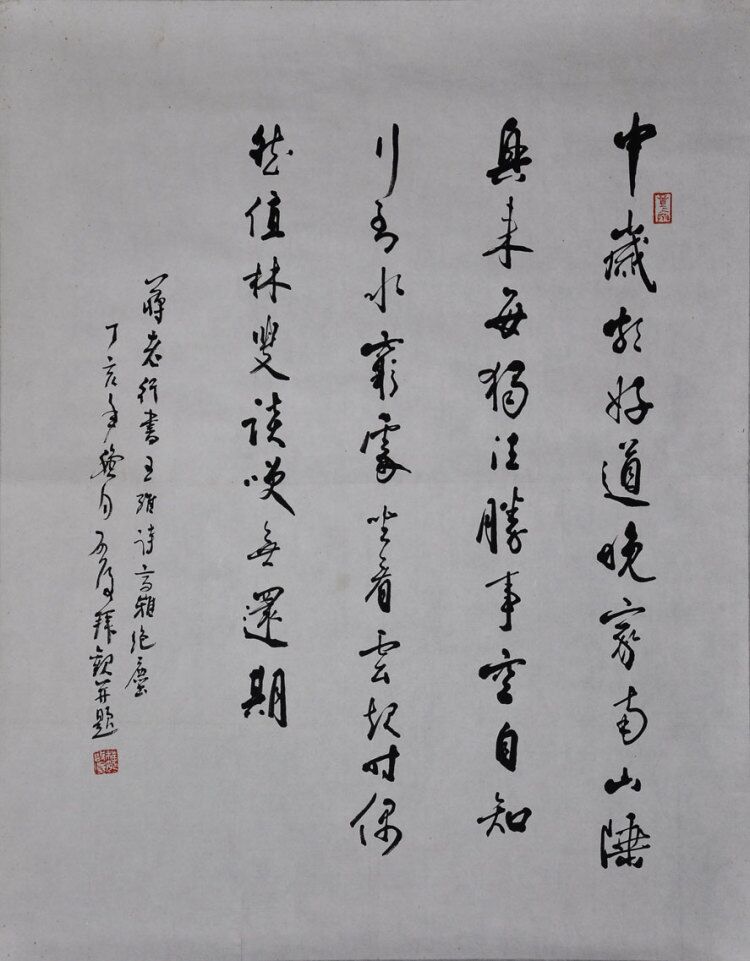 中歲頗好道晚家南山陲
興來每獨往勝事空自知
行到水窮處坐看雲起時偶
然值林叟談咲無還期
蔣老行書王維詩高雅絕塵
丁亥年月拜觀并題